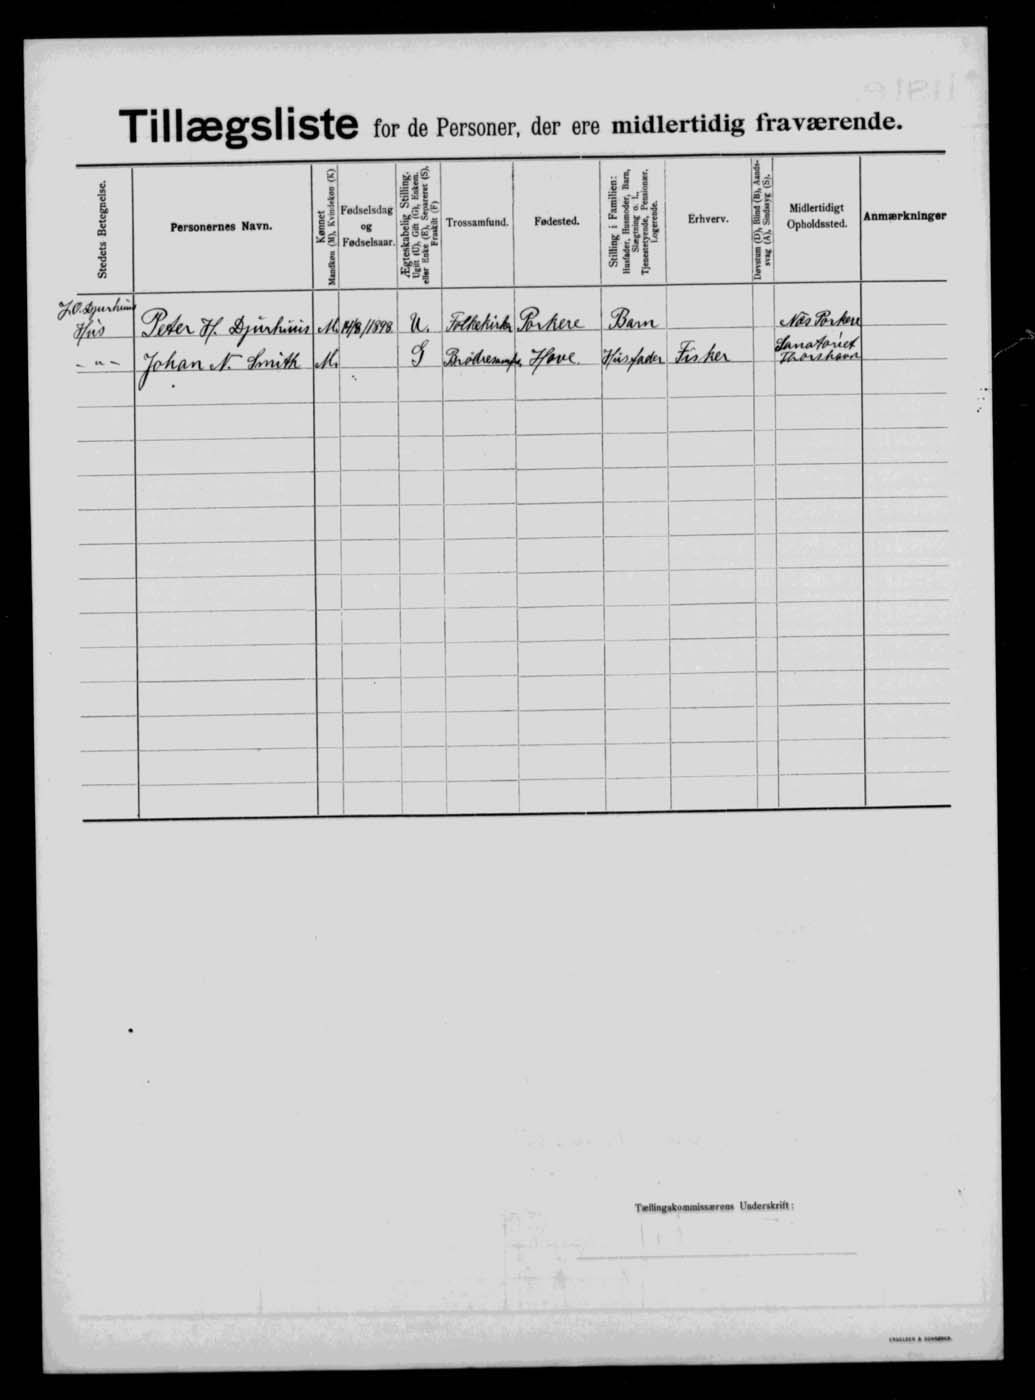 Tillægsliste for de Personer, der ere midlertidig fraværende.
Stedets Betegnelse.
Personernes Navn.
Kønnet
Mandkøn (M), Kvindekøn (K)
Fødselsdag
og
Fødselsaar.
Ægteskabelig Stilling.
Ugift (U), Gift (G), Enkem.
eller Enke (E), Separeret (S),
Fraskilt (F)
Trossamfund.
Fødested.
Stilling i Familien:
Husfader, Husmoder, Barn,
Slægtning o. l.,
Tjenestetyende, Pensionær,
Logerende.
Erhverv.
Døvstum (D), Blind (B), Aands-
svag (A), Sindssyg (S).
Midlertidigt
Opholdssted.
Anmærkninger
J. O. Djurhuus
Hus Peter H. Djurhuus M. 14/8/1898 U. Folkekirke Porkere Barn Næs Porkere
- " - Johan N. Smith M. G Brødresamf. Hove. Husfader Fisker Sanatoriet
Thorshavn
Tællingskommissærens Underskrift: